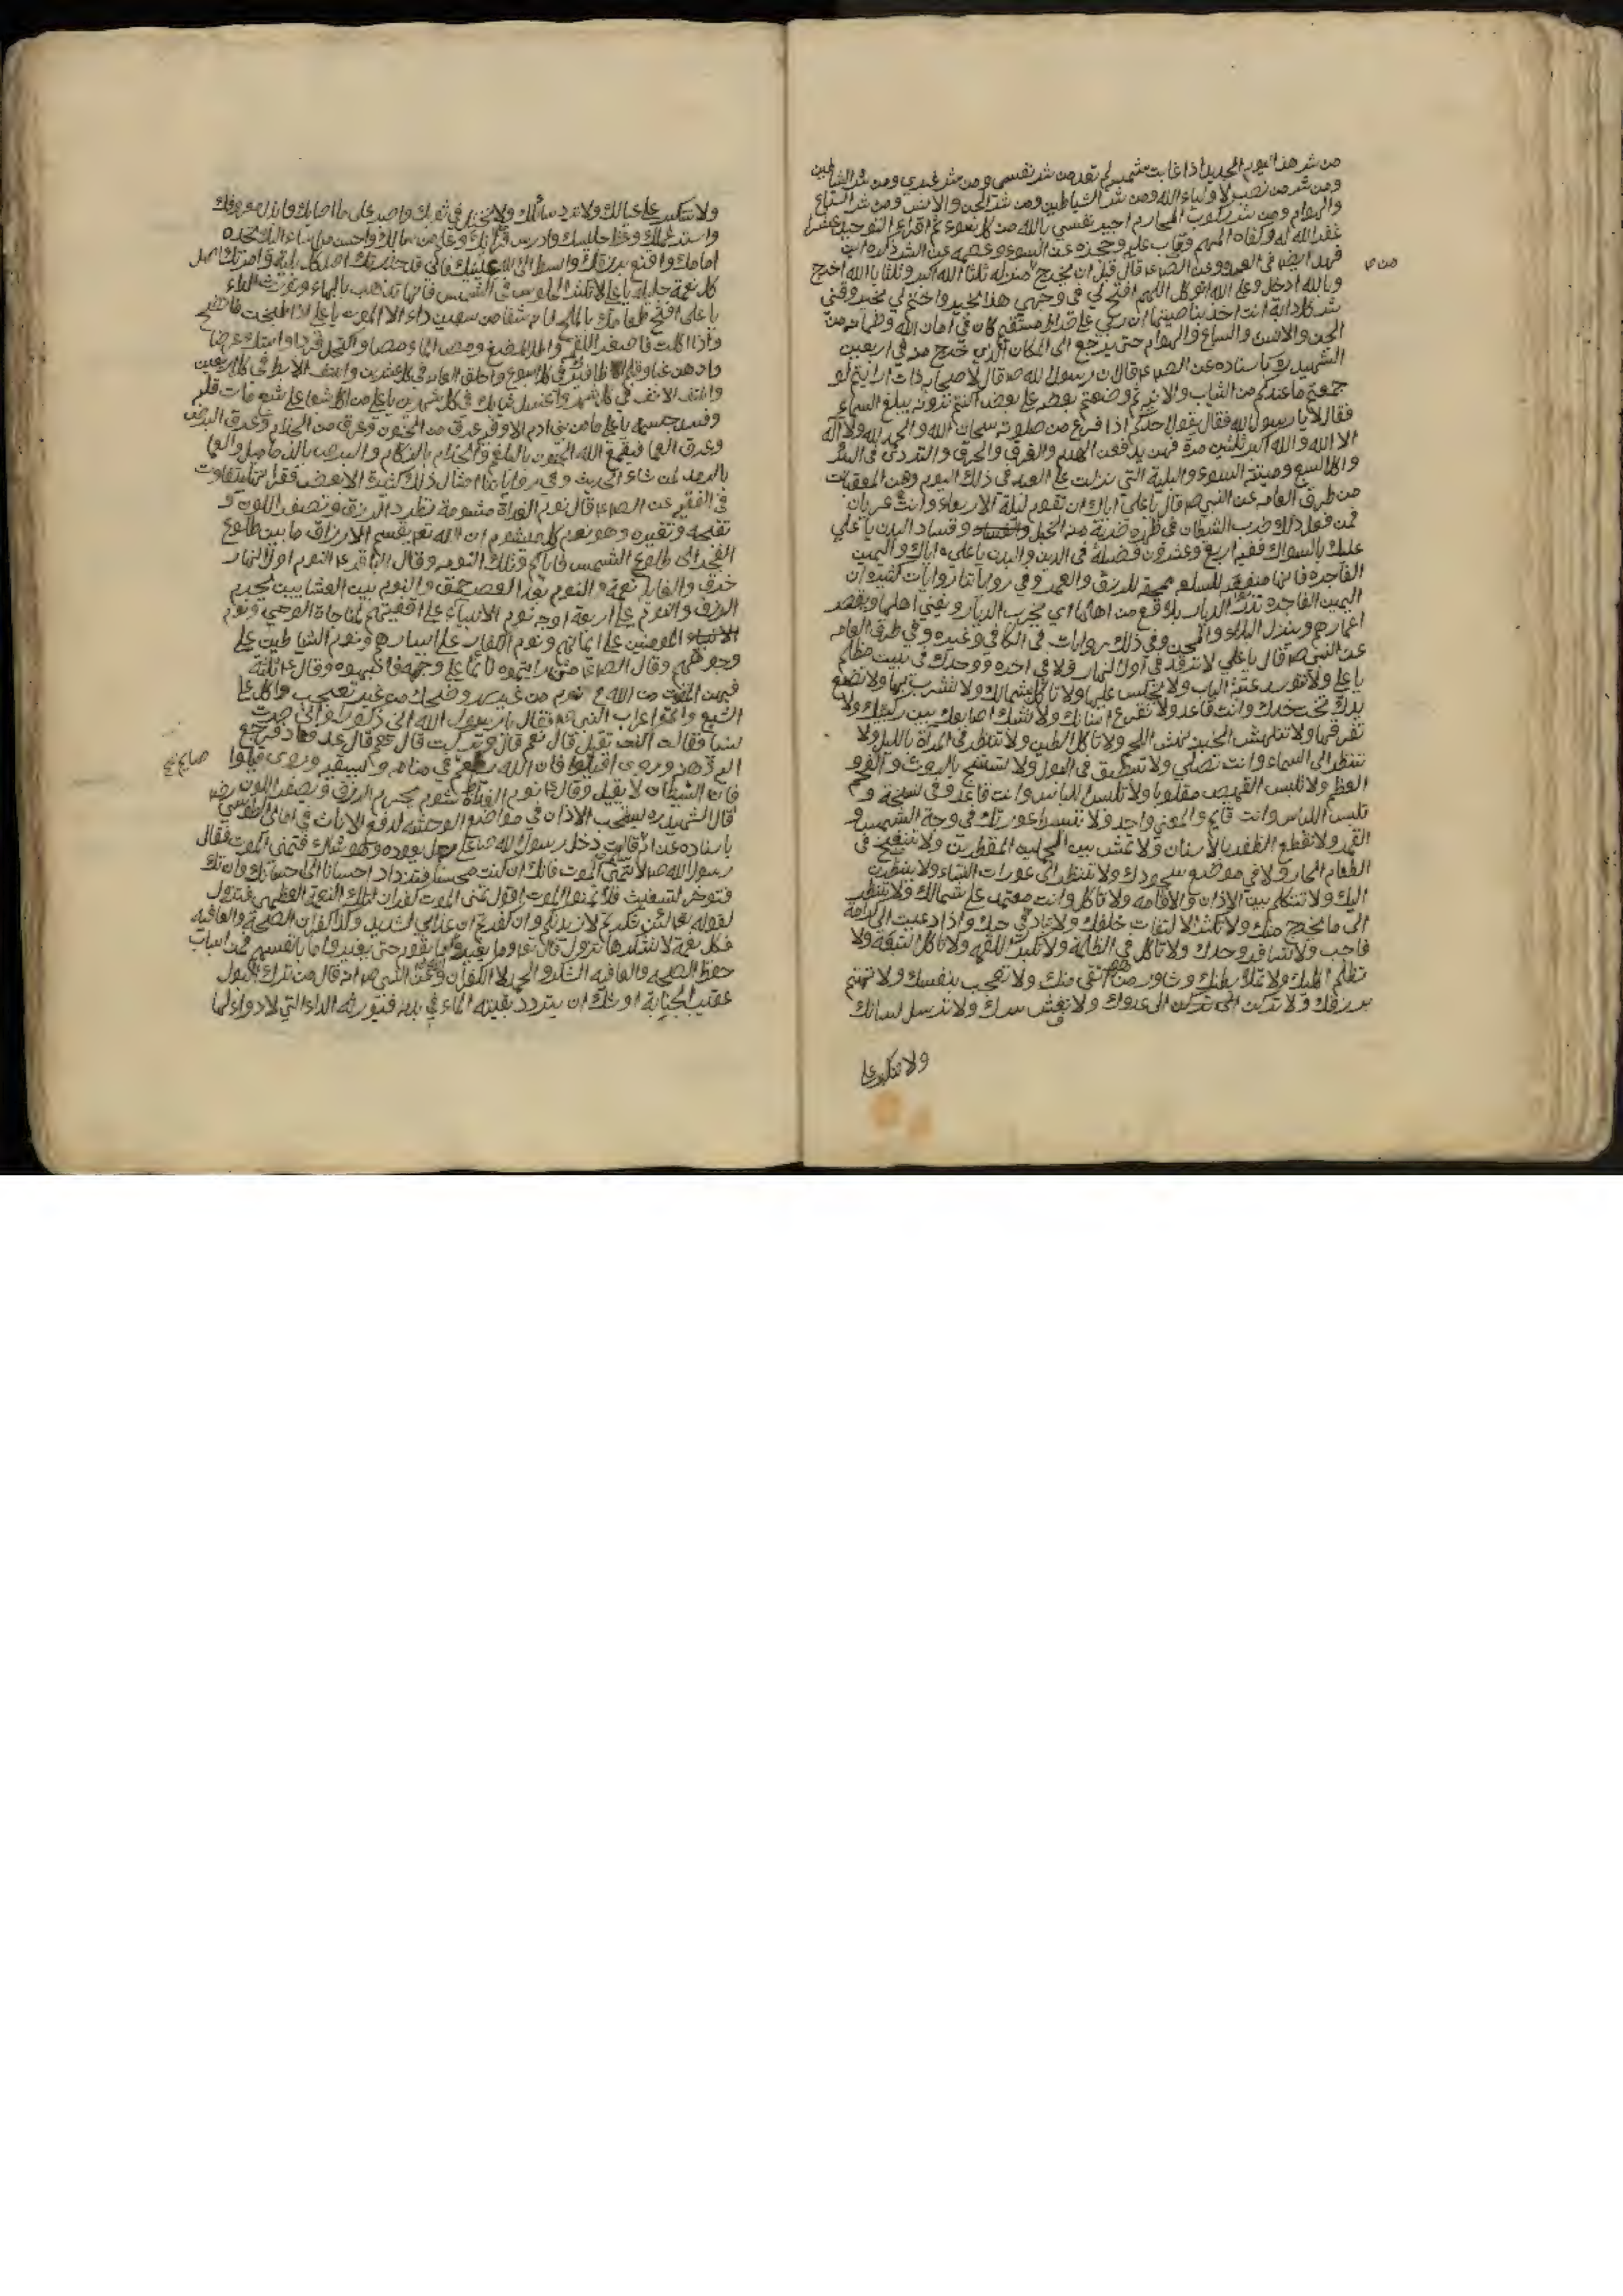 من شر هذا اليوم الجديد اذا غابت شمسه لم تعد من شر نفسي ومن شر غيري ومن شر الشياطين
ومن شر من نصب لاولياء الله ومن شر الشياطين ومن شر الجن والانس ومن شر السباع
والهوام ومن شر ركوب المحارم اجير نفسي بالله من كل سوء ثم اقراء التوحيد عشرا
غفر الله له وكفاه المهم وتاب عليه وحجزه عن السوء وعصمه عن الشر
وعن الصاع قال قبل ان يخرج من منزله ثلثا الله اكبر وثلثا بالله اخرج
من ص
وبالله ادخل وعلى الله اتوكل اللهم افتح لي في وجهي هذا بخير واختم لي بخير وقني
شر كل دابة انت اخذ بناصيتها ان ربي على صراط مستقيم كان في امان الله
الجن والانس والسباع والهوام حتى يرجع الى المكان الذي خرج منه في اربعين
الشهيد باسناده عن الصاع قال ان رسول الله ص قال لاصحابه ذات ارايتم لو
جمعتم ما عندكم من الثياب والانية ثم وضعتم بعضه على بعض اكنتم ترونه يبلغ السماء
فقال لا يا رسول الله فقال يقول احدكم اذا فرغ من صلوته سبحان الله والحمد لله ولا اله
الا الله والله اكبر ثلثين مرة فهن يدفعن الهدم والغرق والحرق والتردى في البئر
واكل السبع وميتة السوء والبلية التي نزلت على العبد في ذلك اليوم وهن المعقبات
من طريق العامه عن النبي ص قال يا علي اياك ان تقوم ليلة الاربعاء وانت عريان
فمن فعل ذلك ضرب الشيطان في ظهره ضربة من الخبل وفساد البدن يا علي
عليك بالسواك ففيه اربع وعشرون فضيلة في الدين والبدن يا علي اياك واليمين
الفاجرة فانها منفقة للسلع ممحقة للرزق والعمر وفي رواياتنا روايات كثيرة ان
اليمين الفاجرة تذر الديار بلاقع من اهلها اي يخرب الديار ويفني اهلها ويقصر
اعمارهم وينزل البلاء والمحن وفي ذلك روايات في الكافي وغيره وفي طرق العامه
عن النبي ص قال يا علي لا ترقد في اول النهار ولا في اخره ووحدك في بيت مظلم
يا علي ولا تتوسد عتبة الباب ولا تجلس عليها ولا تاكل بشمالك ولا تشرب بها ولا تضع
يدك تحت خدك وانت قاعد ولا تقرع اسنانك ولا تشبك اصابعك بين ركبتيك ولا
تفرقعها ولا تنهش الخبز نهش اللحم ولا تاكل الطين ولا تنظر في المرآة بالليل ولا
تنظر الى السماء وانت تصلي ولا تبزق في البول ولا تستنج بالروث و
العظم ولا تلبس القميص مقلوبا ولا تلبس اللباس وانت قاعد وفي نسخة و
تلبس اللباس وانت قايم والمعنى واحد ولا تنسط عورتك في وجه الشمس و
القمر ولا تقطع الظفر بالاسنان ولا تمش بين المقطرين ولا تنفخ في
الطعام الحار ولا في موضع سجودك ولا تنظر الى عورات النساء ولا ينظرن
اليك ولا تتكلم بين الاذان والاقامه ولا تاكل وانت معتمد على شمالك ولا تنظر
الى ما يخرج منك ولا تكثر الالتفات خلفك واذا دعيت الى كرامة
فاجب ولا تسافر وحدك ولا تاكل في الظلمة ولا تكبر اللقمه ولا تاكل ولا
تظلم اهلك ولا تملا بطنك وشاور من هو اتقى منك ولا تعجب بنفسك ولا تهتم
برزقك ولا تركن الى عدوك ولا تفش سرك ولا ترسل لسانك
ولا تتكبر على
ولا تتكبر على عيالك ولا ترد سائلك واصبر على ما اصابك وابذل معروفك
وعظ جليسك وادرس قرآنك واحسن من
امامك واقنع برزقك
كل نعمة جليلة يا علي لا تكثر الجلوس في الشمس فانها تذهب بالبهاء وتورث الداء
يا علي افتتح طعامك بالملح فانه شفا من سبعين داء الا الموت يا علي اذا طبخت
واذا اكلت فاصغر اللقم واطل المضغ ومص الماء مصا واكتحل فردا واستك عرضا
وادهن غبا وقلم اظافيرك في كل اسبوع واحلق العانه في كل عشرين وانتف الابط في كل اربعين
وانتف الانف في كل شهر واغسل ثيابك في كل شهرين
وفسد جسمه يا علي ما من بني ادم الا وفيه عرق من الجنون وعرق من الجذام وعرق البرص
وعرق العما فيقمع الله الجنون بالبلغم والجذام بالزكام والبرص بالدماميل والعما
بالرمد لمن شاء الحديث وفي رواياتنا امثال ذلك كثيرة الا بعض فقراتها بتفاوت
في الفقيه عن الصاع قال نوم الغداة مشومة تطرد الرزق وتصفر اللون و
تقبحه وتغيره وهو نوم كل ميشوم ان الله تع يقسم الارزاق ما بين طلوع
الفجر الى طلوع الشمس فاياكم وتلك النومه وقال الباقر ع النوم اول النهار
خرق والقايلة نعمة والنوم بعد العصر حمق والنوم بين العشايين يحرم
الرزق والنوم على اربعة اوجه نوم الانبياء على اقفيتهم لمناجاة الوحي ونوم
المومنين على ايمانهم ونوم الكفار على ايسارهم ونوم الشياطين على
وجوههم وقال الصاع من رايتموه نائما على وجهه فانبهوه وقال ع ثلثة
فيهن المقت من الله ع نوم من غير سهر وضحك من غير تعجب واكل على
الشبع واتى اعرابي النبي ص فقال يا رسول الله اني كنت ذكورا واني صرت
نسيا فقال اكنت تقيل قال نعم قال وتركت قال نعم قال عد فعاد فرجع
اليه ذهنه وروى اقيلوا فان الله يطعم في منامه ويسقيه وروى قيلوا
صايم خ
فان الشيطان لا يقيل وقال ع نوم الغداة شوم يحرم الرزق ويصفر اللون
قال الشهيد ره يستحب الاذان في مواضع الوحشه في امالى الطوسي رضه
باسناده دخل رسول الله ص على رجل يعوده وهو شاك فتمنى الموت فقال
رسول الله ص لا تتمنى الموت فانك ان كنت محسنا فتزداد احسانا الى حسناتك وان تك
فتوخر لتستعتب فلا تمنوا الموت اقول تمنى الموت كفران لتلك النعمة العظمى فتزول
لقوله تعالى لئن شكرتم لازيدنكم وان كفرتم ان عذابي لشديد وكذا كفران الصحة والعافيه
فكل نعمة لا تشكرها تزول قال تعا وما يغير ما بقوم حتى يغيروا ما بانفسهم فمن اسباب
حفظ الصحه والعافيه الشكر والحمد لا الكفران وعن النبي ص انه قال من ترك البول
عقيب الجنابة اوشك ان يتردد بقية الماء في بدنه فتورثه الداء التي لا دواء لها